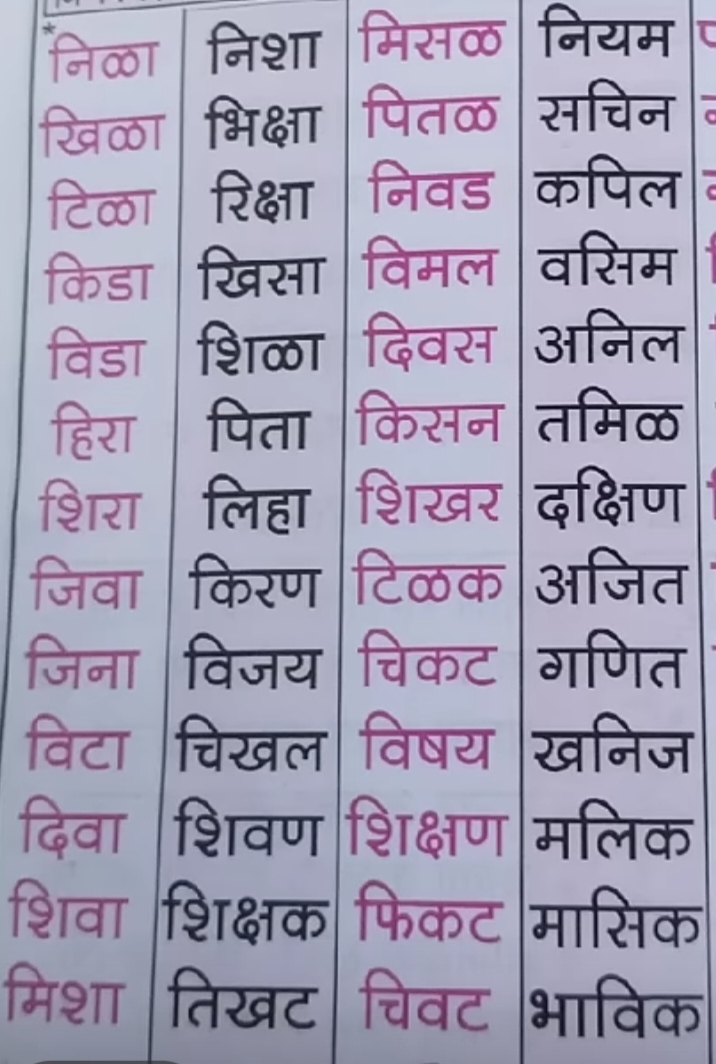 * निळा निशा मिसळ नियम
खिळा भिक्षा पितळ सचिन
टिळा रिक्षा निवड कपिल
किडा खिसा विमल वसिम
विडा शिळा दिवस अनिल
हिरा पिता किसन तमिळ
शिरा लिहा शिखर दक्षिण
जिवा किरण टिळक अजित
जिना विजय चिकट गणित
विटा चिखल विषय खनिज
दिवा शिवण शिक्षण मलिक
शिवा शिक्षक फिकट मासिक
मिशा तिखट चिवट भाविक